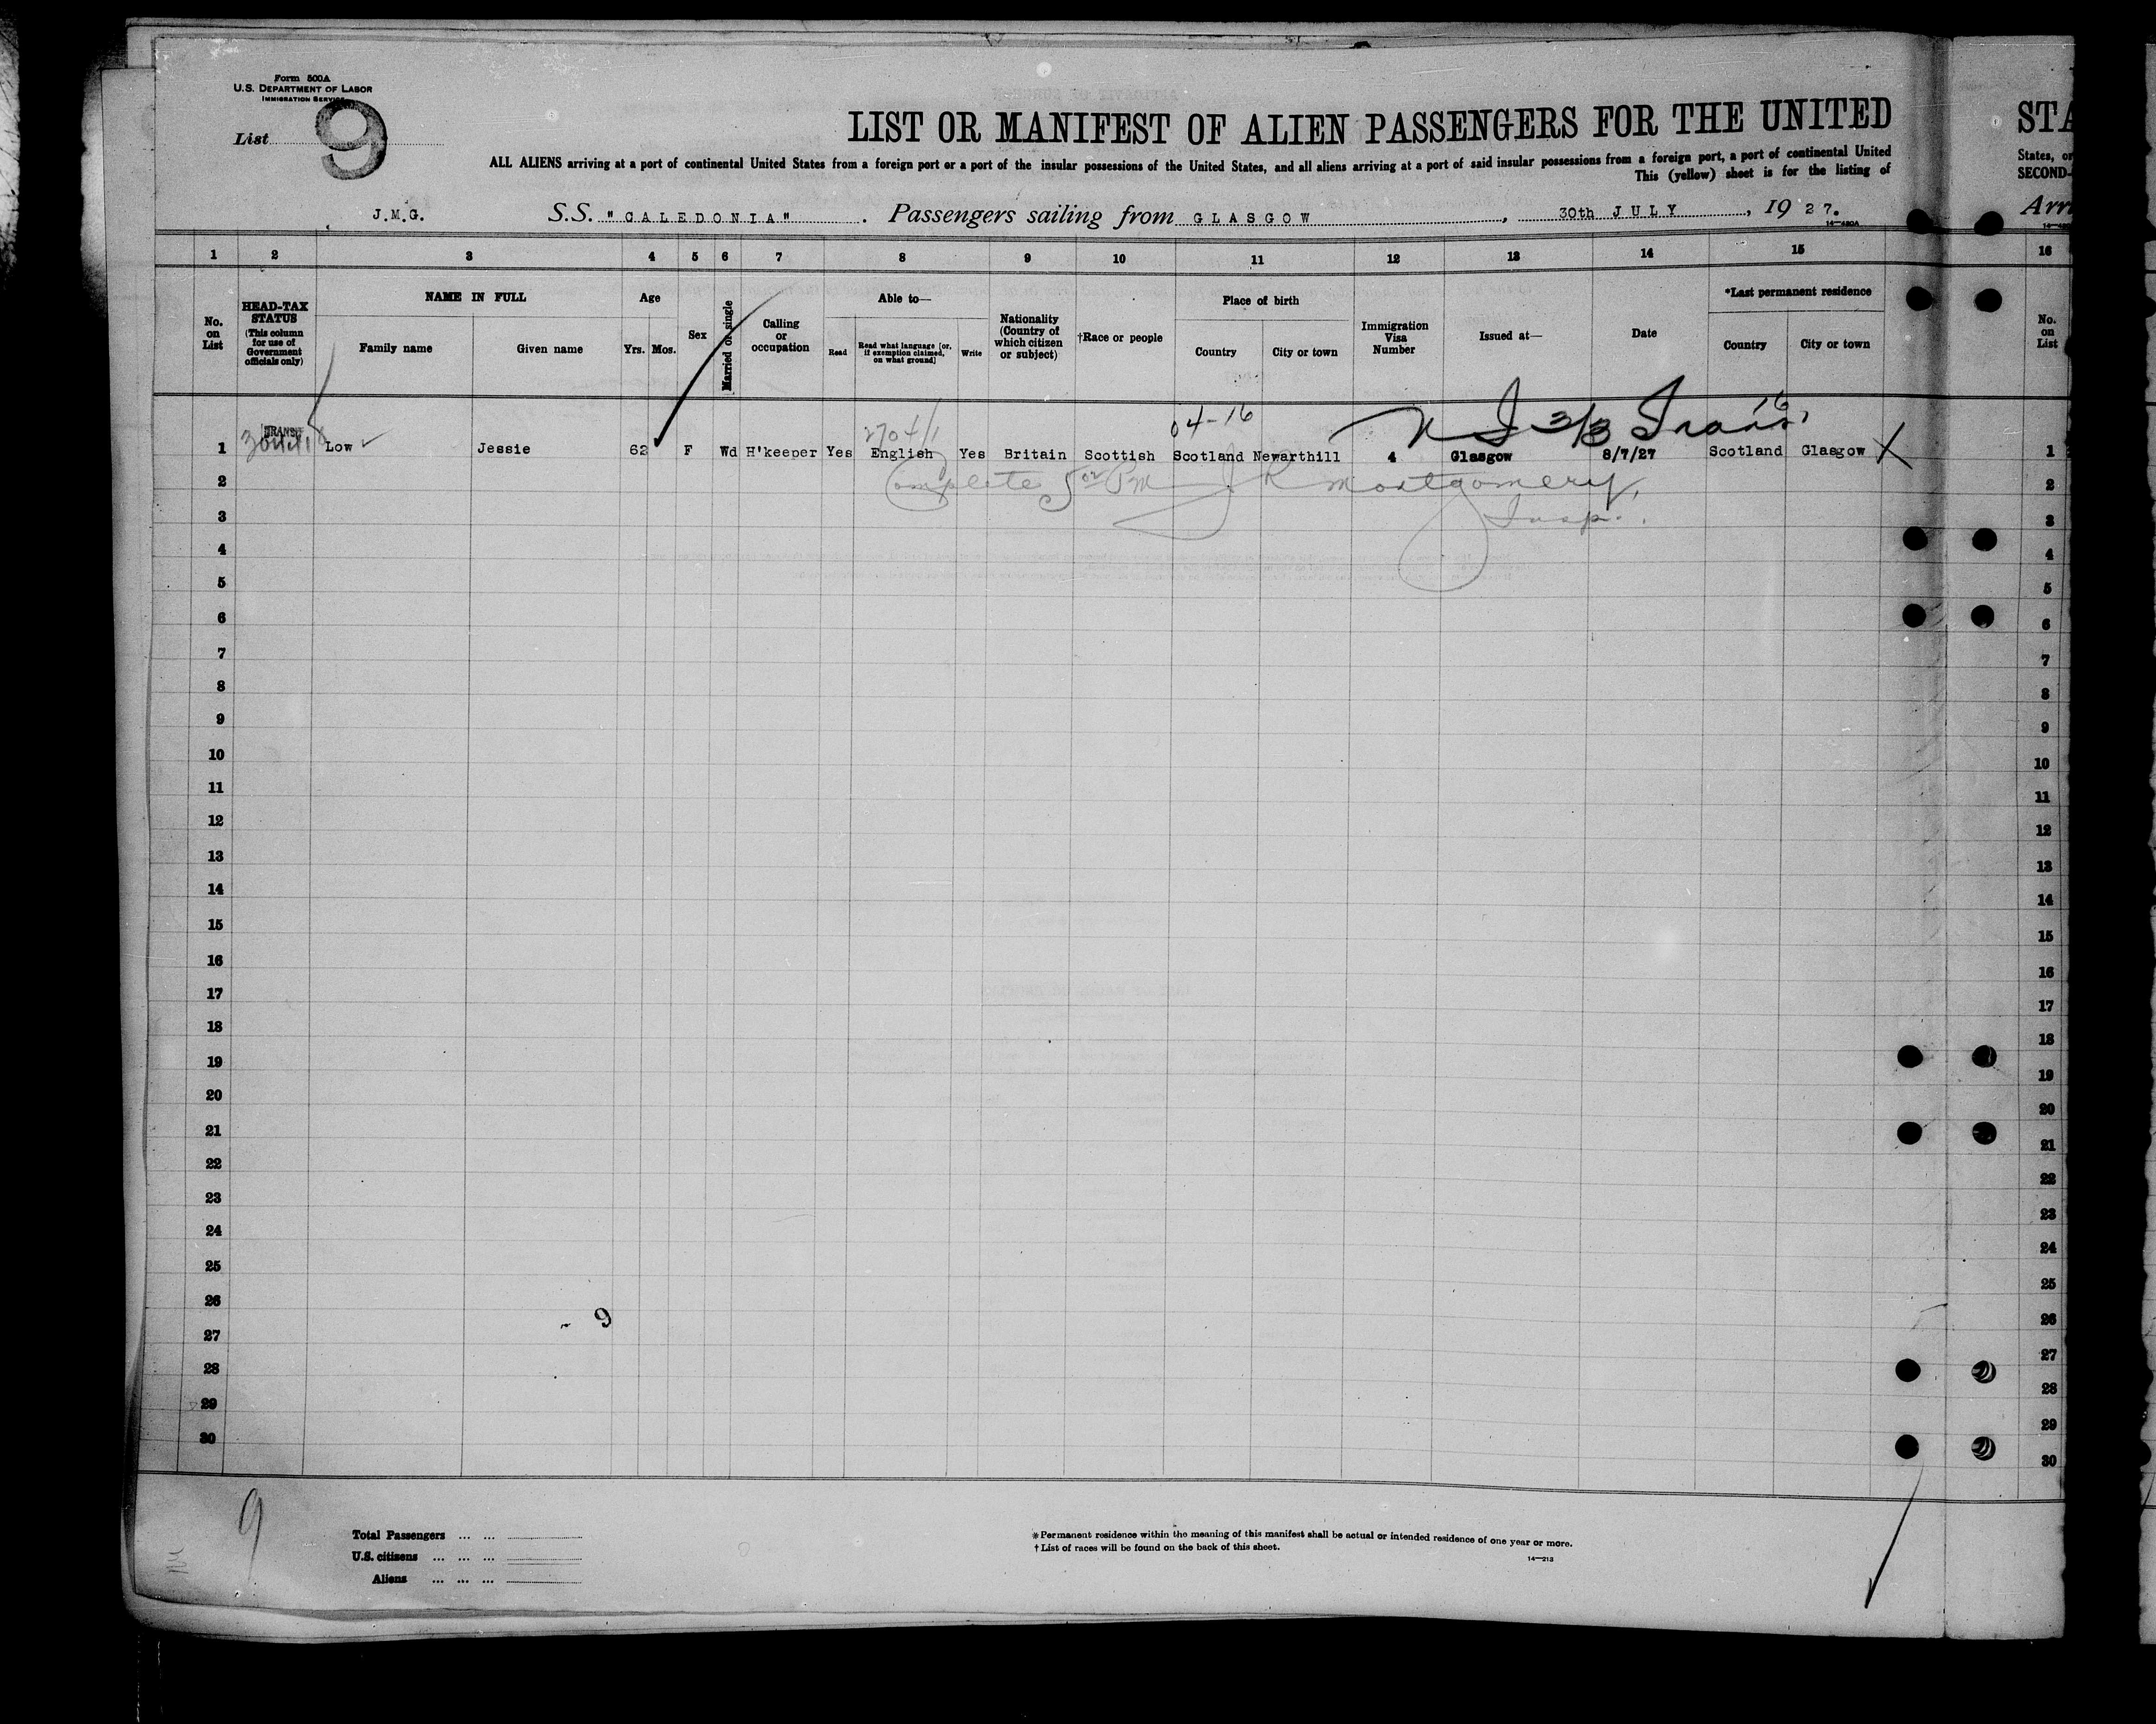 Form 500A
U.S. DEPARTMENT OF LABOR
IMMIGRATION SERVICE
List 9
LIST OR MANIFEST OF ALIEN PASSENGERS FOR THE UNITED
STA
ALL ALIENS arriving at a port of continental United States from a foreign port or a port of the insular possessions of the United States, and all aliens arriving at a port of said insular possessions from a foreign port, a port of continental United
States, or
This (yellow) sheet is for the listing of
SECOND-
J.M.G. S.S. "CALEDONIA". Passengers sailing from GLASGOW, 30th JULY, 1927.
Arri
14—480A
1 2 3 4 5 6 7 8 9 10 11 12 13 14 15 16
No. on List
HEAD-TAX STATUS (This column for use of Government officials only)
NAME IN FULL
Family name Given name
Age
Yrs. Mos.
Sex
Married or single
Calling or occupation
Able to—
Read Read what language [or, if exemption claimed, on what ground] Write
Nationality (Country of which citizen or subject)
†Race or people
Place of birth
Country City or town
Immigration Visa Number
Issued at—
Date
*Last permanent residence
Country City or town
No. on List
04-16
TRANSIT
1 Low Jessie 62 F Wd H'keeper Yes English Yes Britain Scottish Scotland Newarthill 4 Glasgow 8/7/27 Scotland Glasgow X 1
2 Complete 5 00 PM J R Montgomery, 2
3 Insp. 3
4 4
5 5
6 6
7 7
8 8
9 9
10 10
11 11
12 12
13 13
14 14
15 15
16 16
17 17
18 18
19 19
20 20
21 21
22 22
23 23
24 24
25 25
26 26
- 9
27 27
28 28
29 29
30 30
9
Total Passengers ... ...
U.S. citizens ... ... ...
Aliens ... ... ...
*Permanent residence within the meaning of this manifest shall be actual or intended residence of one year or more.
†List of races will be found on the back of this sheet.
14—213